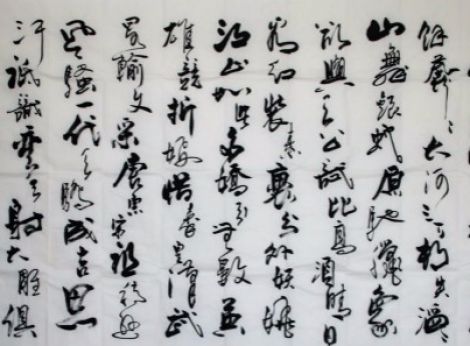 餘莽莽大河上下頓失滔滔
山舞銀蛇原馳蠟象
欲與天公試比高須晴日
看紅裝素裹分外妖嬈
江山如此多嬌引無數英
雄競折腰惜秦皇漢武
略輸文采唐宗宋祖稍遜
風騷一代天驕成吉思
汗祇識彎弓射大雕俱